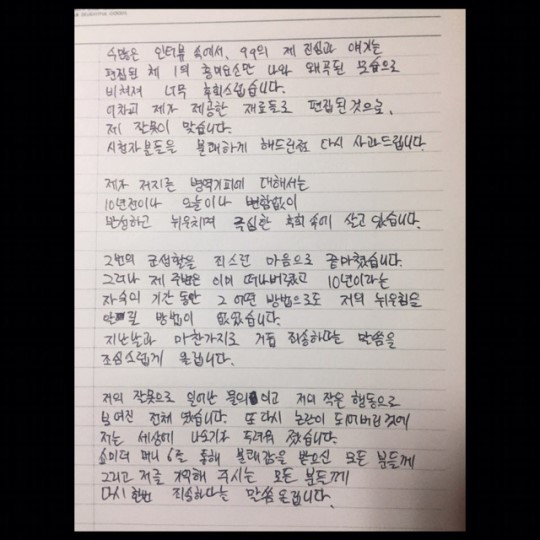 수많은 인터뷰 속에서, 99의 제 진심과 얘기는
편집된 체 1의 흥미요소만 나와 왜곡된 모습으로
비쳐져 너무 후회스럽습니다.
어차피 제자 제공한 재료들로 편집된것으로,
제 잘못이 맞습니다.
시청자분들을 불쾌하게 해드린점 다시 사과드립니다.
제자 저지른 병역기피에 대해서는
10년전이나 오늘이나 변함없이
반성하고 뉘우치며 극심한 후회속에 살고 있습니다.
2번의 군생활을 죄스런 마음으로 끝마쳤습니다.
그러나 제 주변은 이미 떠나버렸고 10년이라는
자숙의 기간 동안 그 어떤 방법으로도 저의 뉘우침을
방법이 없었습니다.
지난날과 마찬가지로 거듭 죄송하다는 말씀을
조심스럽게 올립니다.
저의 잘못으로 일어난 물의 이고 저의 작은 행동으로
보여진 전체 였습니다. 또 다시 논란이 되어버린 것에
저는 세상에 나오기가 두려워 졌습니다.
쇼미더 머니 6를 통해 불쾌감을 받으신 모든 분들께
그리고 저를 기억해 주시는 모든 분들께
다시 한번 죄송하다는 말씀 올립니다.